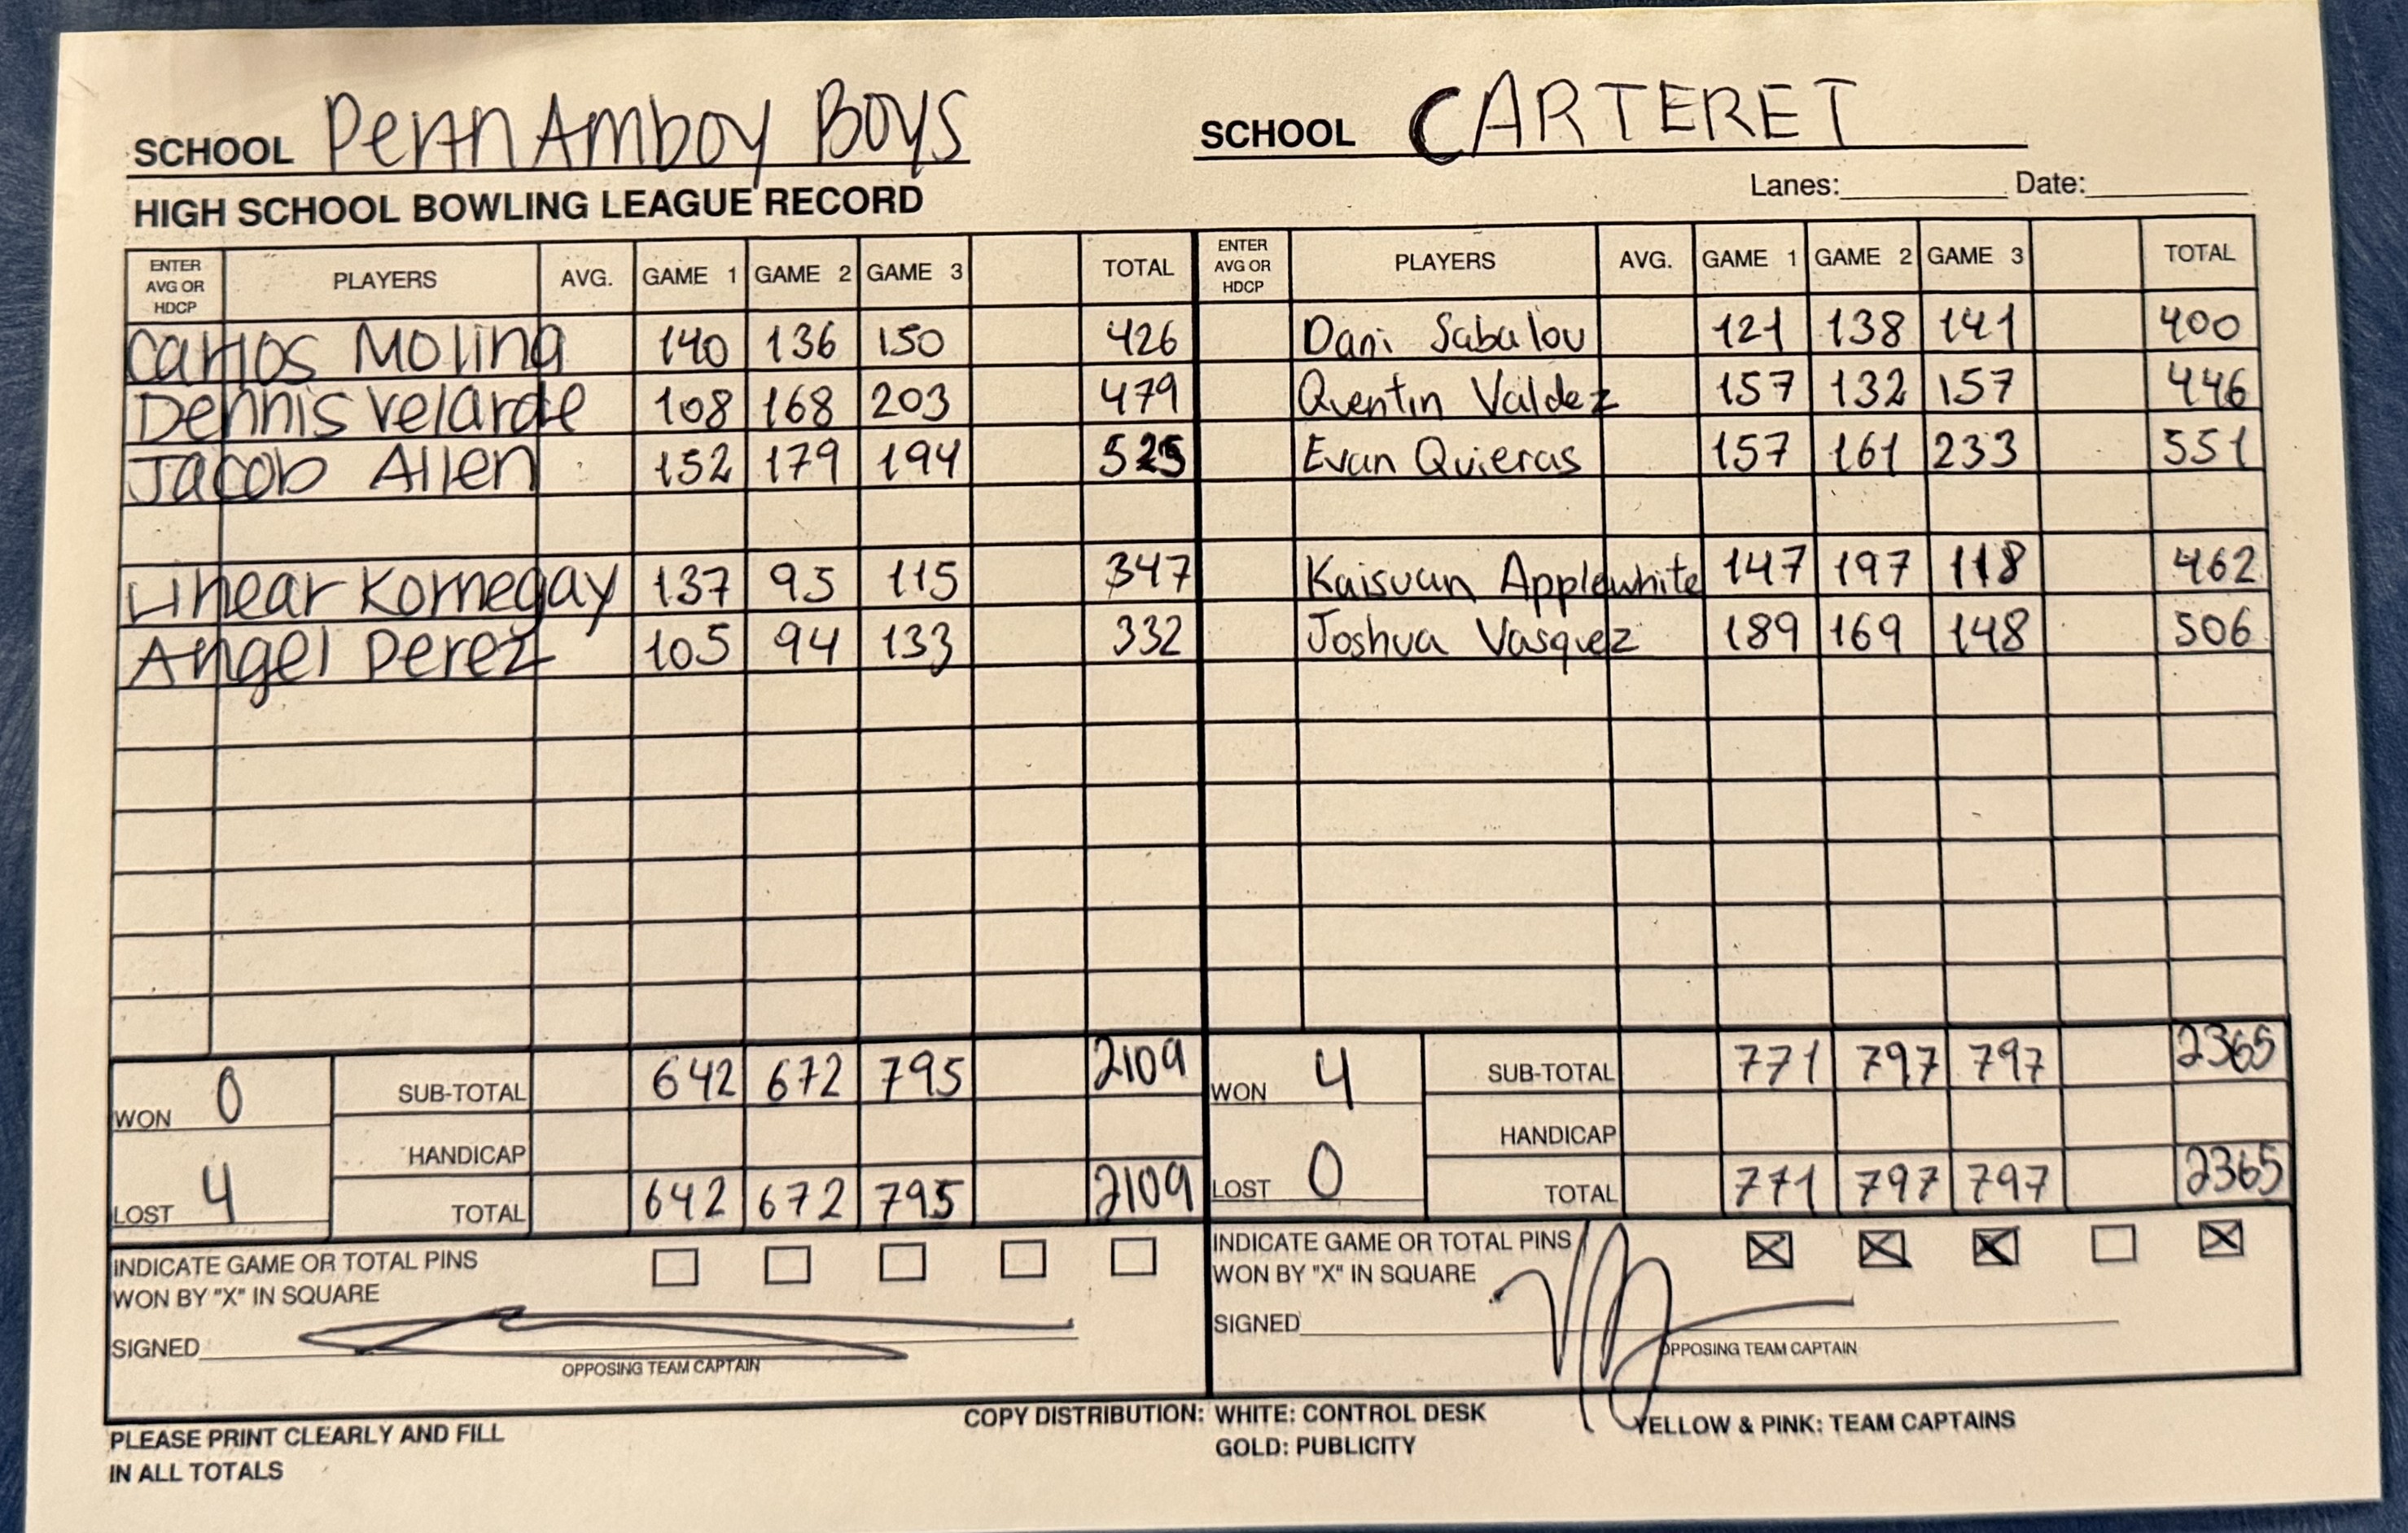 SCHOOL Perth Amboy Boys
SCHOOL CARTERET
HIGH SCHOOL BOWLING LEAGUE RECORD
Lanes: Date:
ENTER AVG OR HDCP PLAYERS AVG. GAME 1 GAME 2 GAME 3 TOTAL ENTER AVG OR HDCP PLAYERS AVG. GAME 1 GAME 2 GAME 3 TOTAL
Carlos Molina 140 136 150 426 Dani Sabalou 121 138 141 400
Dennis Velarde 108 168 203 479 Quentin Valdez 157 132 157 446
Jacob Allen 152 179 194 525 Evan Quieras 157 161 233 551
Linear Kornegay 137 95 115 347 Kaisuan Applewhite 147 197 118 462
Angel Perez 105 94 133 332 Joshua Vasquez 189 169 148 506
WON 0 SUB-TOTAL 642 672 795 2109 WON 4 SUB-TOTAL 771 797 797 2365
HANDICAP HANDICAP
LOST 4 TOTAL 642 672 795 2109 LOST 0 TOTAL 771 797 797 2365
INDICATE GAME OR TOTAL PINS INDICATE GAME OR TOTAL PINS
WON BY "X" IN SQUARE WON BY "X" IN SQUARE
SIGNED SIGNED
OPPOSING TEAM CAPTAIN OPPOSING TEAM CAPTAIN
PLEASE PRINT CLEARLY AND FILL
IN ALL TOTALS
COPY DISTRIBUTION: WHITE: CONTROL DESK YELLOW & PINK: TEAM CAPTAINS
GOLD: PUBLICITY